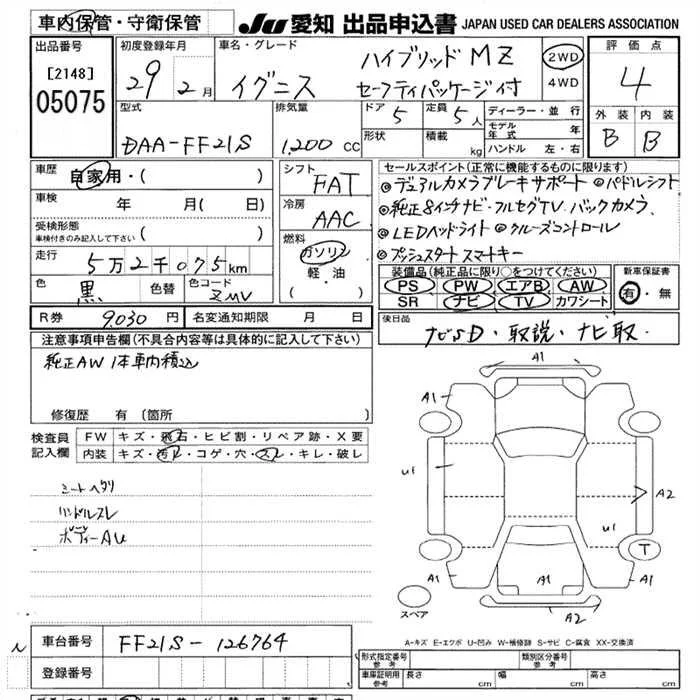 車内保管・守衛保管
JU 愛知 出品申込書 JAPAN USED CAR DEALERS ASSOCIATION
出品番号
[2148]
05075
初度登録年月
29年 2月
車名・グレード
イグニス
ハイブリッド MZ
セーフティパッケージ付
2WD
4WD
評価点
4
外装 内装
B B
型式
DAA-FF21S
排気量
1,200 cc
ドア 5
定員 5人
形状
積載 kg
ディーラー・並行
モデル年式 年
ハンドル 左・右
車歴
自家用・( )
車検 年 月( 日)
受検形態
車検付きのみ記入して下さい ( )
走行 5万2千075km
色 黒 色替 色コード ZMV
シフト
FAT
冷房
AAC
燃料
ガソリン
軽・油
( )
セールスポイント(正常に機能するものに限ります)
◎デュアルカメラブレーキサポート ◎パドルシフト
◎純正8インチナビ・フルセグTV、バックカメラ、
◎LEDヘッドライト ◎クルーズコントロール
◎プッシュスタート スマートキー
装備品(純正品に限り○をつけてください)
PS PW エアB AW
SR ナビ TV カワシート
新車保証書
有・無
R券 9,030円 名変通知期限 月 日
後日品
ナビSD・取説・ナビ取.
注意事項申告欄(不具合内容等は具体的に記入して下さい)
純正AW 1本車内積込
修復歴 有 (箇所 )
検査員
記入欄
FW キズ・飛石・ヒビ割・リペア跡・X要
内装 キズ・汚レ・コゲ・穴・スレ・キレ・破レ
シートヘタリ
ハンドルスレ
ボディーAU
A1
A1
A1
U1
A2
U1
T
A1
A1
A1
A2
スペア
A-キズ E-エクボ U-凹み W-補修跡 S-サビ C-腐食 XX-交換済
車台番号 FF21S-126764
登録番号
形式指定番号 参考
類別区分番号 参考
車庫証明用 参考 長さ cm 幅 cm 高さ cm